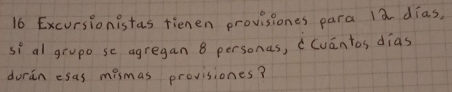 16 Excursionistas tienen provisiones para 12 días,
si al grupo se agregan 8 personas, ¿Cuántos días
durán esas mismas provisiones?